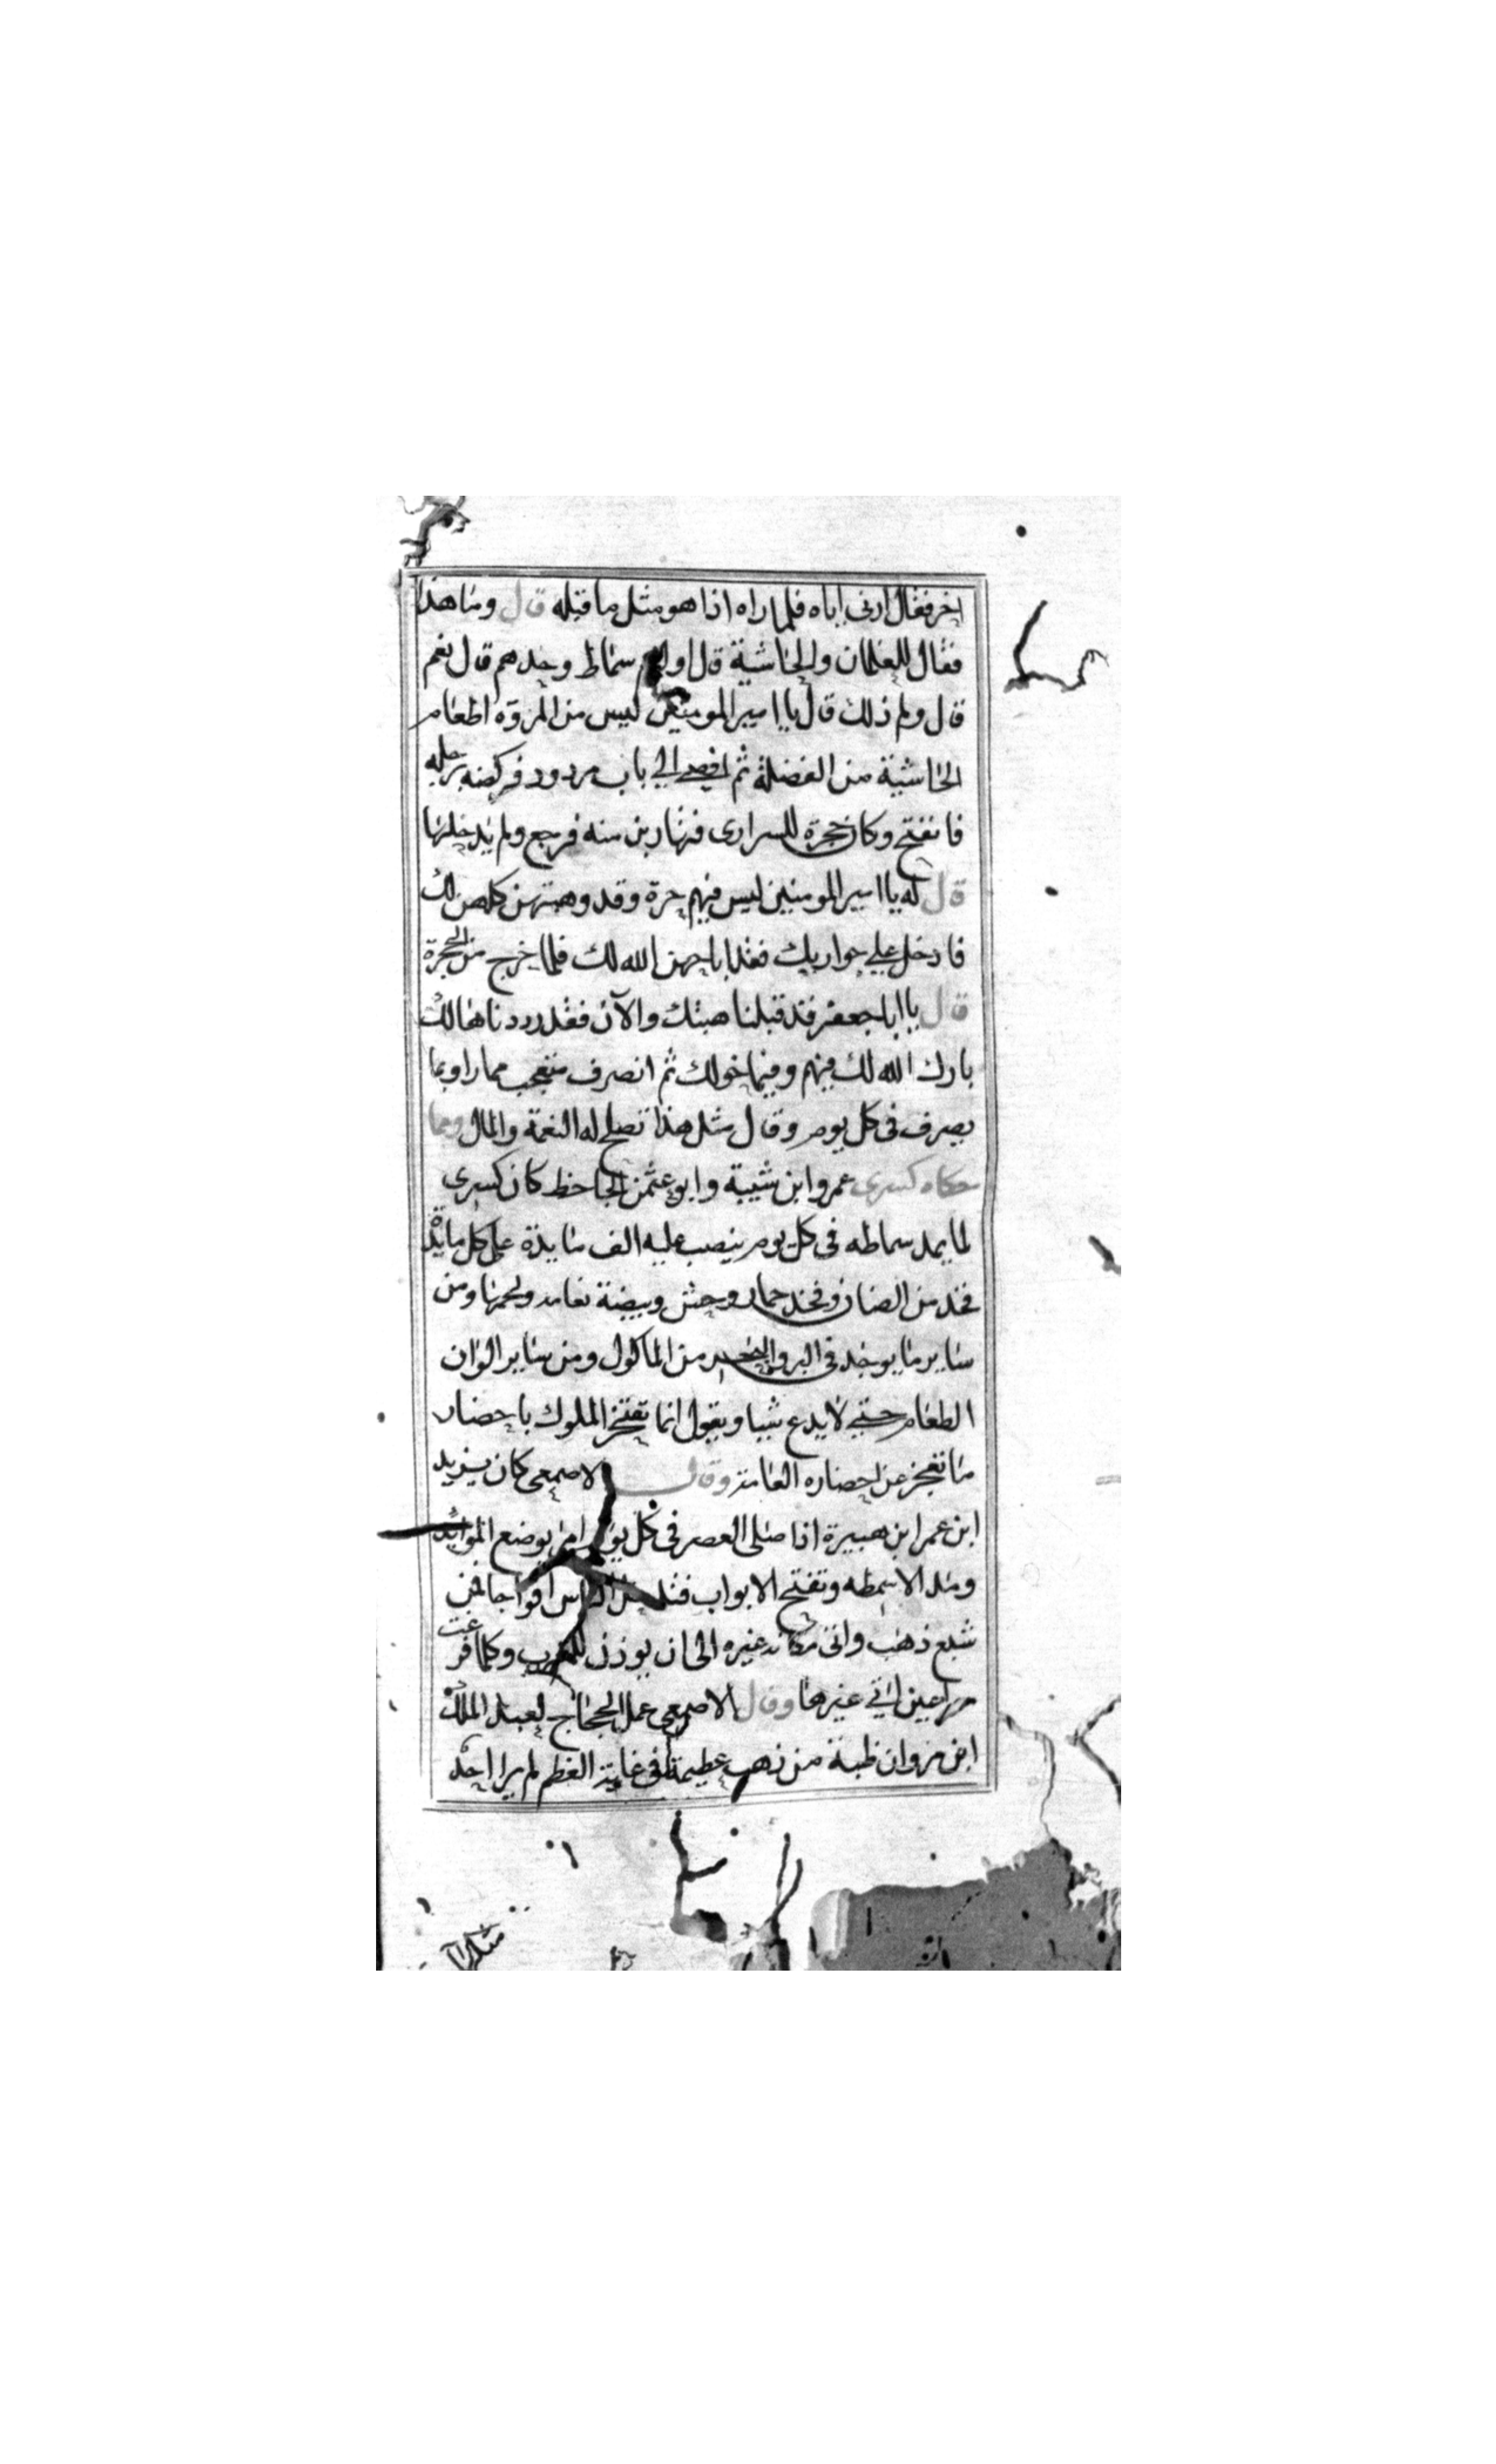 اخر فقال ارنى اياه فلما راه اذا هو مثل ما قبله قال وما هذا
فقال للغلمان والحاشية قال اولهم سماط وحدهم قال نعم
قال ولم ذلك قال يا امير المومنين ليس من المروة اطعام
الحاشية من الفضلة ثم افضى الى باب مردود فركضه برجله
فانفتح وكان حجرة للسرارى فتهاربن منه فرجع ولم يدخلها
قال له يا امير المومنين ليس فيهم حرة وقد وهبتهن كلهن لك
فادخل على جواريك فقد اباحهن الله لك فلما خرج من الحجرة
قال يا ابا جعفر قد قبلنا هبتك والآن فقد رددناها لك
بارك الله لك فيهم وفيما خولك ثم انصرف متعجب مما راو بما
يصرف فى كل يوم وقال مثل هذا تصلح له النعمة والمال ومما
حكاه كسرى عمرو ابن شيبة وابو عثمن الجاحظ كان كسرى
لما يمد سماطه فى كل يوم ينصب عليه الف مايدة على كل مايدة
فخد من الضان وفخد حمار وحش وبيضة نعامه ولحمها ومن
ساير ما يوجد فى البر والبحر من الماكول ومن ساير الوان
الطعام حتى لا يدع شيا ويقول انما تفتخر الملوك باحضار
ما تعجز عن احضاره العامة وقال الاصمعى كان يزيد
ابن عمر ابن هبيرة اذا صلى العصر فى كل يوم امر بوضع الموايد
ومد الاسمطه وتفتح الابواب فتدخل الناس افواجا فمن
شبع ذهب واتى مكانه غيره الى ان يوذن للمغرب وكلما فرغت
مراعين اتى غيرها وقال الاصمعى عمل الحجاج لعبد الملك
ابن مروان ظبة من ذهب عظيمة فى غاية العظم لم يرا احد